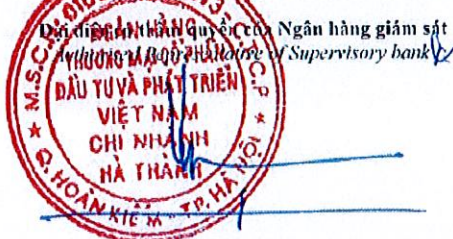 Đại diện thẩm quyền của Ngân hàng giám sát
Authorised Representative of Supervisory bank
M.S.C.N:
NGÂN HÀNG
THƯƠNG MẠI CỔ PHẦN
ĐẦU TƯ VÀ PHÁT TRIỂN
VIỆT NAM
CHI NHÁNH
HÀ THÀNH
Q. HOÀN KIẾM - TP. HÀ NỘI